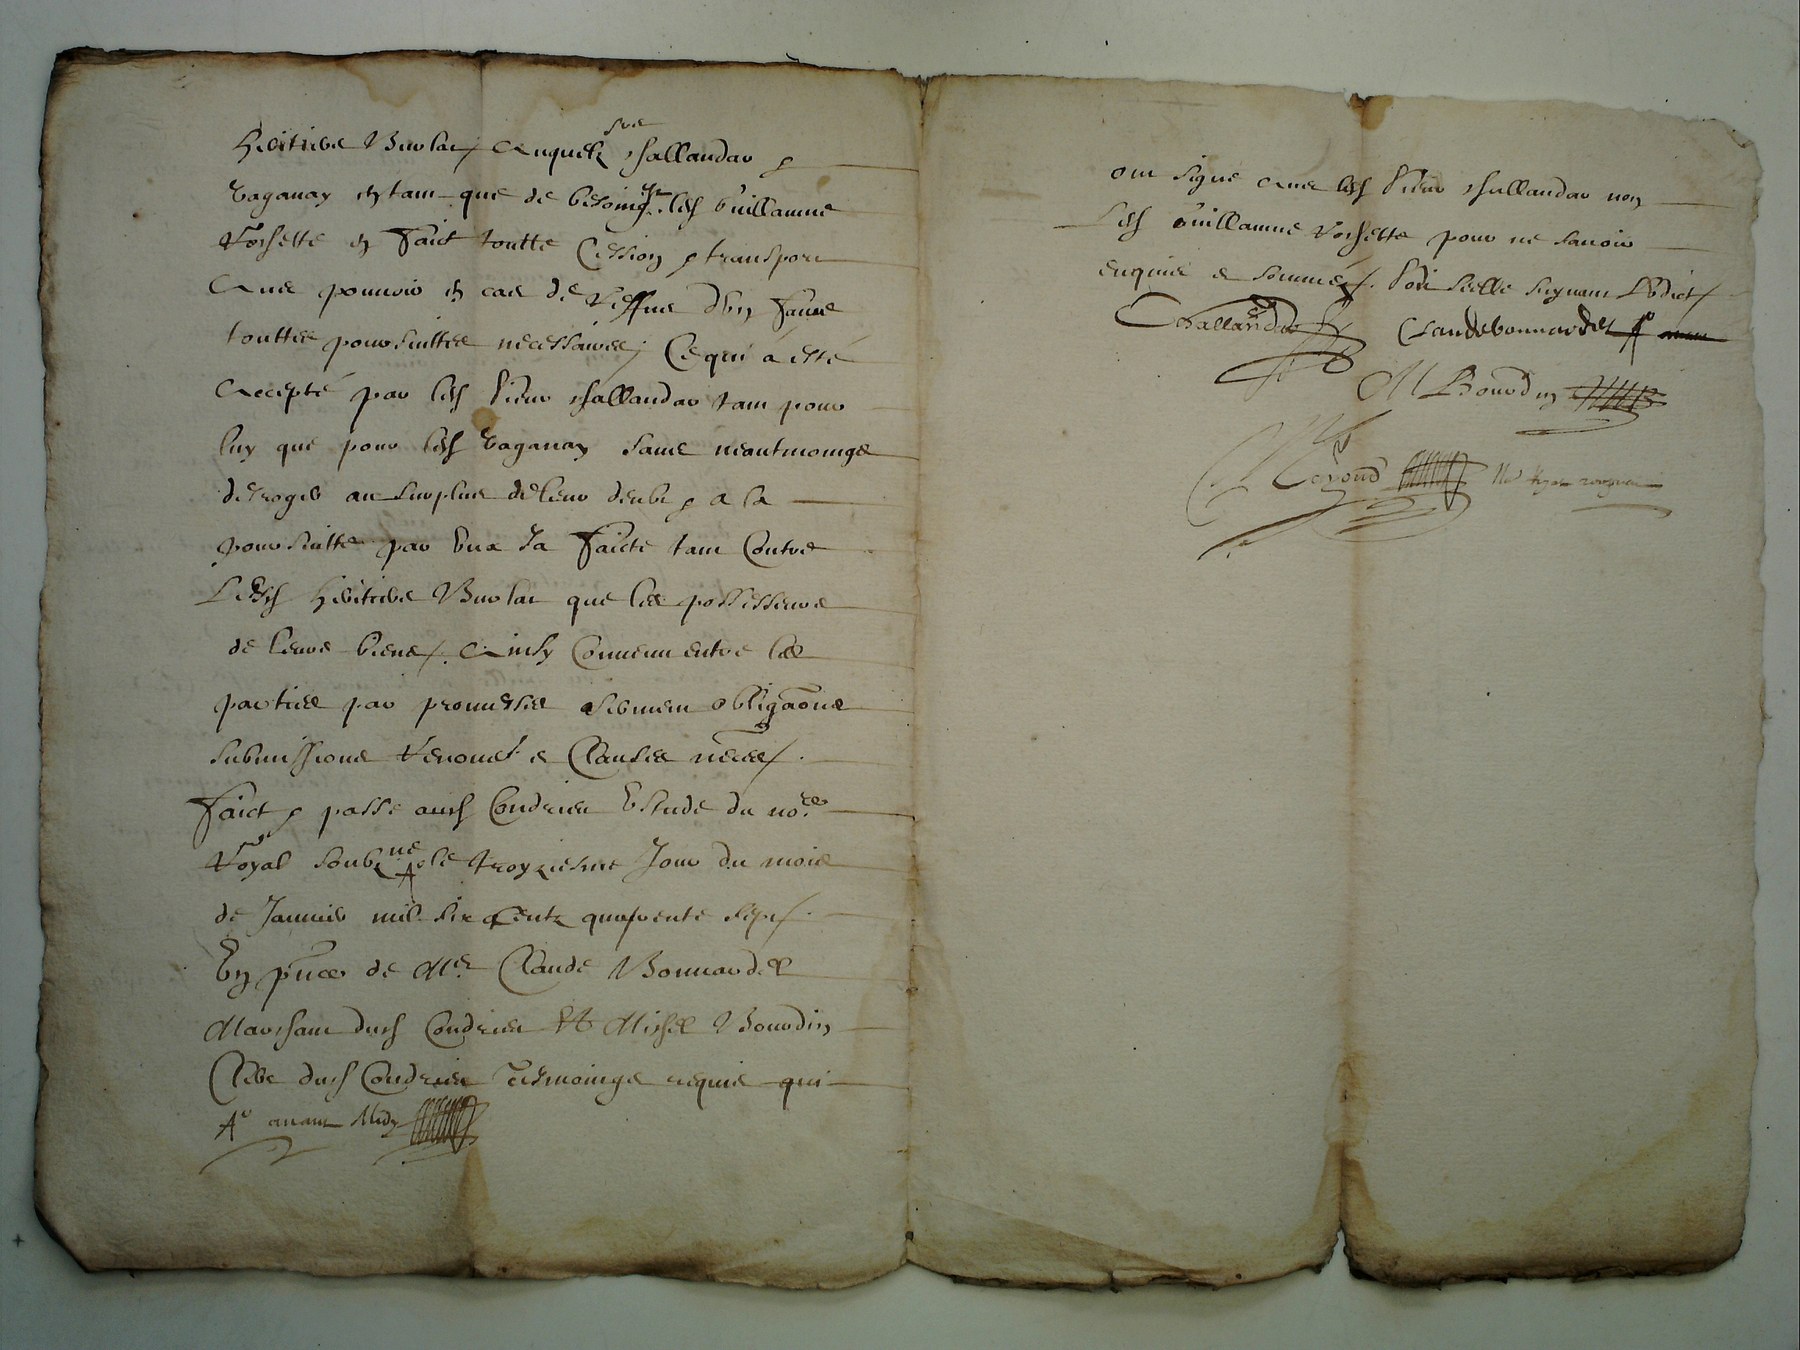 heritiers Burlat, ausquelz srs challandar et
Baganay en tant que de besoing led Guillaume
Rochette en faict toutte cession et transport
avec pouvoir en cas de reffus d'en faire
touttes poursuittes necessaires, Ce qui a esté
accepté par led sieur challandar tant pour
luy que pour led Baganay sans neantmoings
desroger au surplus de leur deub et a la
poursuitte par eux ja faicte tant contre
Lesd heritiers Burlat que les possesseurs
de leurs biens, Ainsy convenu entre les
parties par promesses serment obligaons
submissions renonc et clauses necess.
Faict et passé aud Condrieu Estude du nore
Royal soubzne le troyziesme Jour du mois
de Janvier mil six centz quarente sept.
En pnce de Me Claude Bonnardel
Marchant dud Condrieu Et Michel Bourdin
Clerc dud Condrieu tesmoings requis qui
ont signé avec led sieur challandar non
Led Guillaume rochette pour ne savoir
enquis et sommé,
Challandar Claude bonnardel
M Bourdin